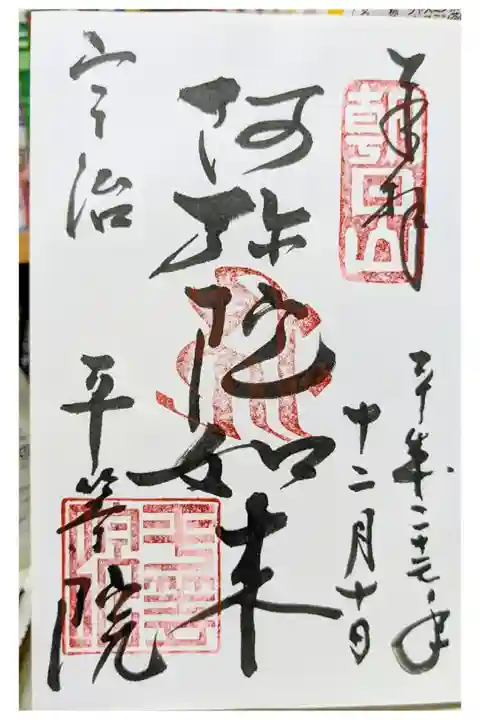 奉拝
朝日山
平成二十七年
十二月十日
阿弥陀如来
宇治
平等院